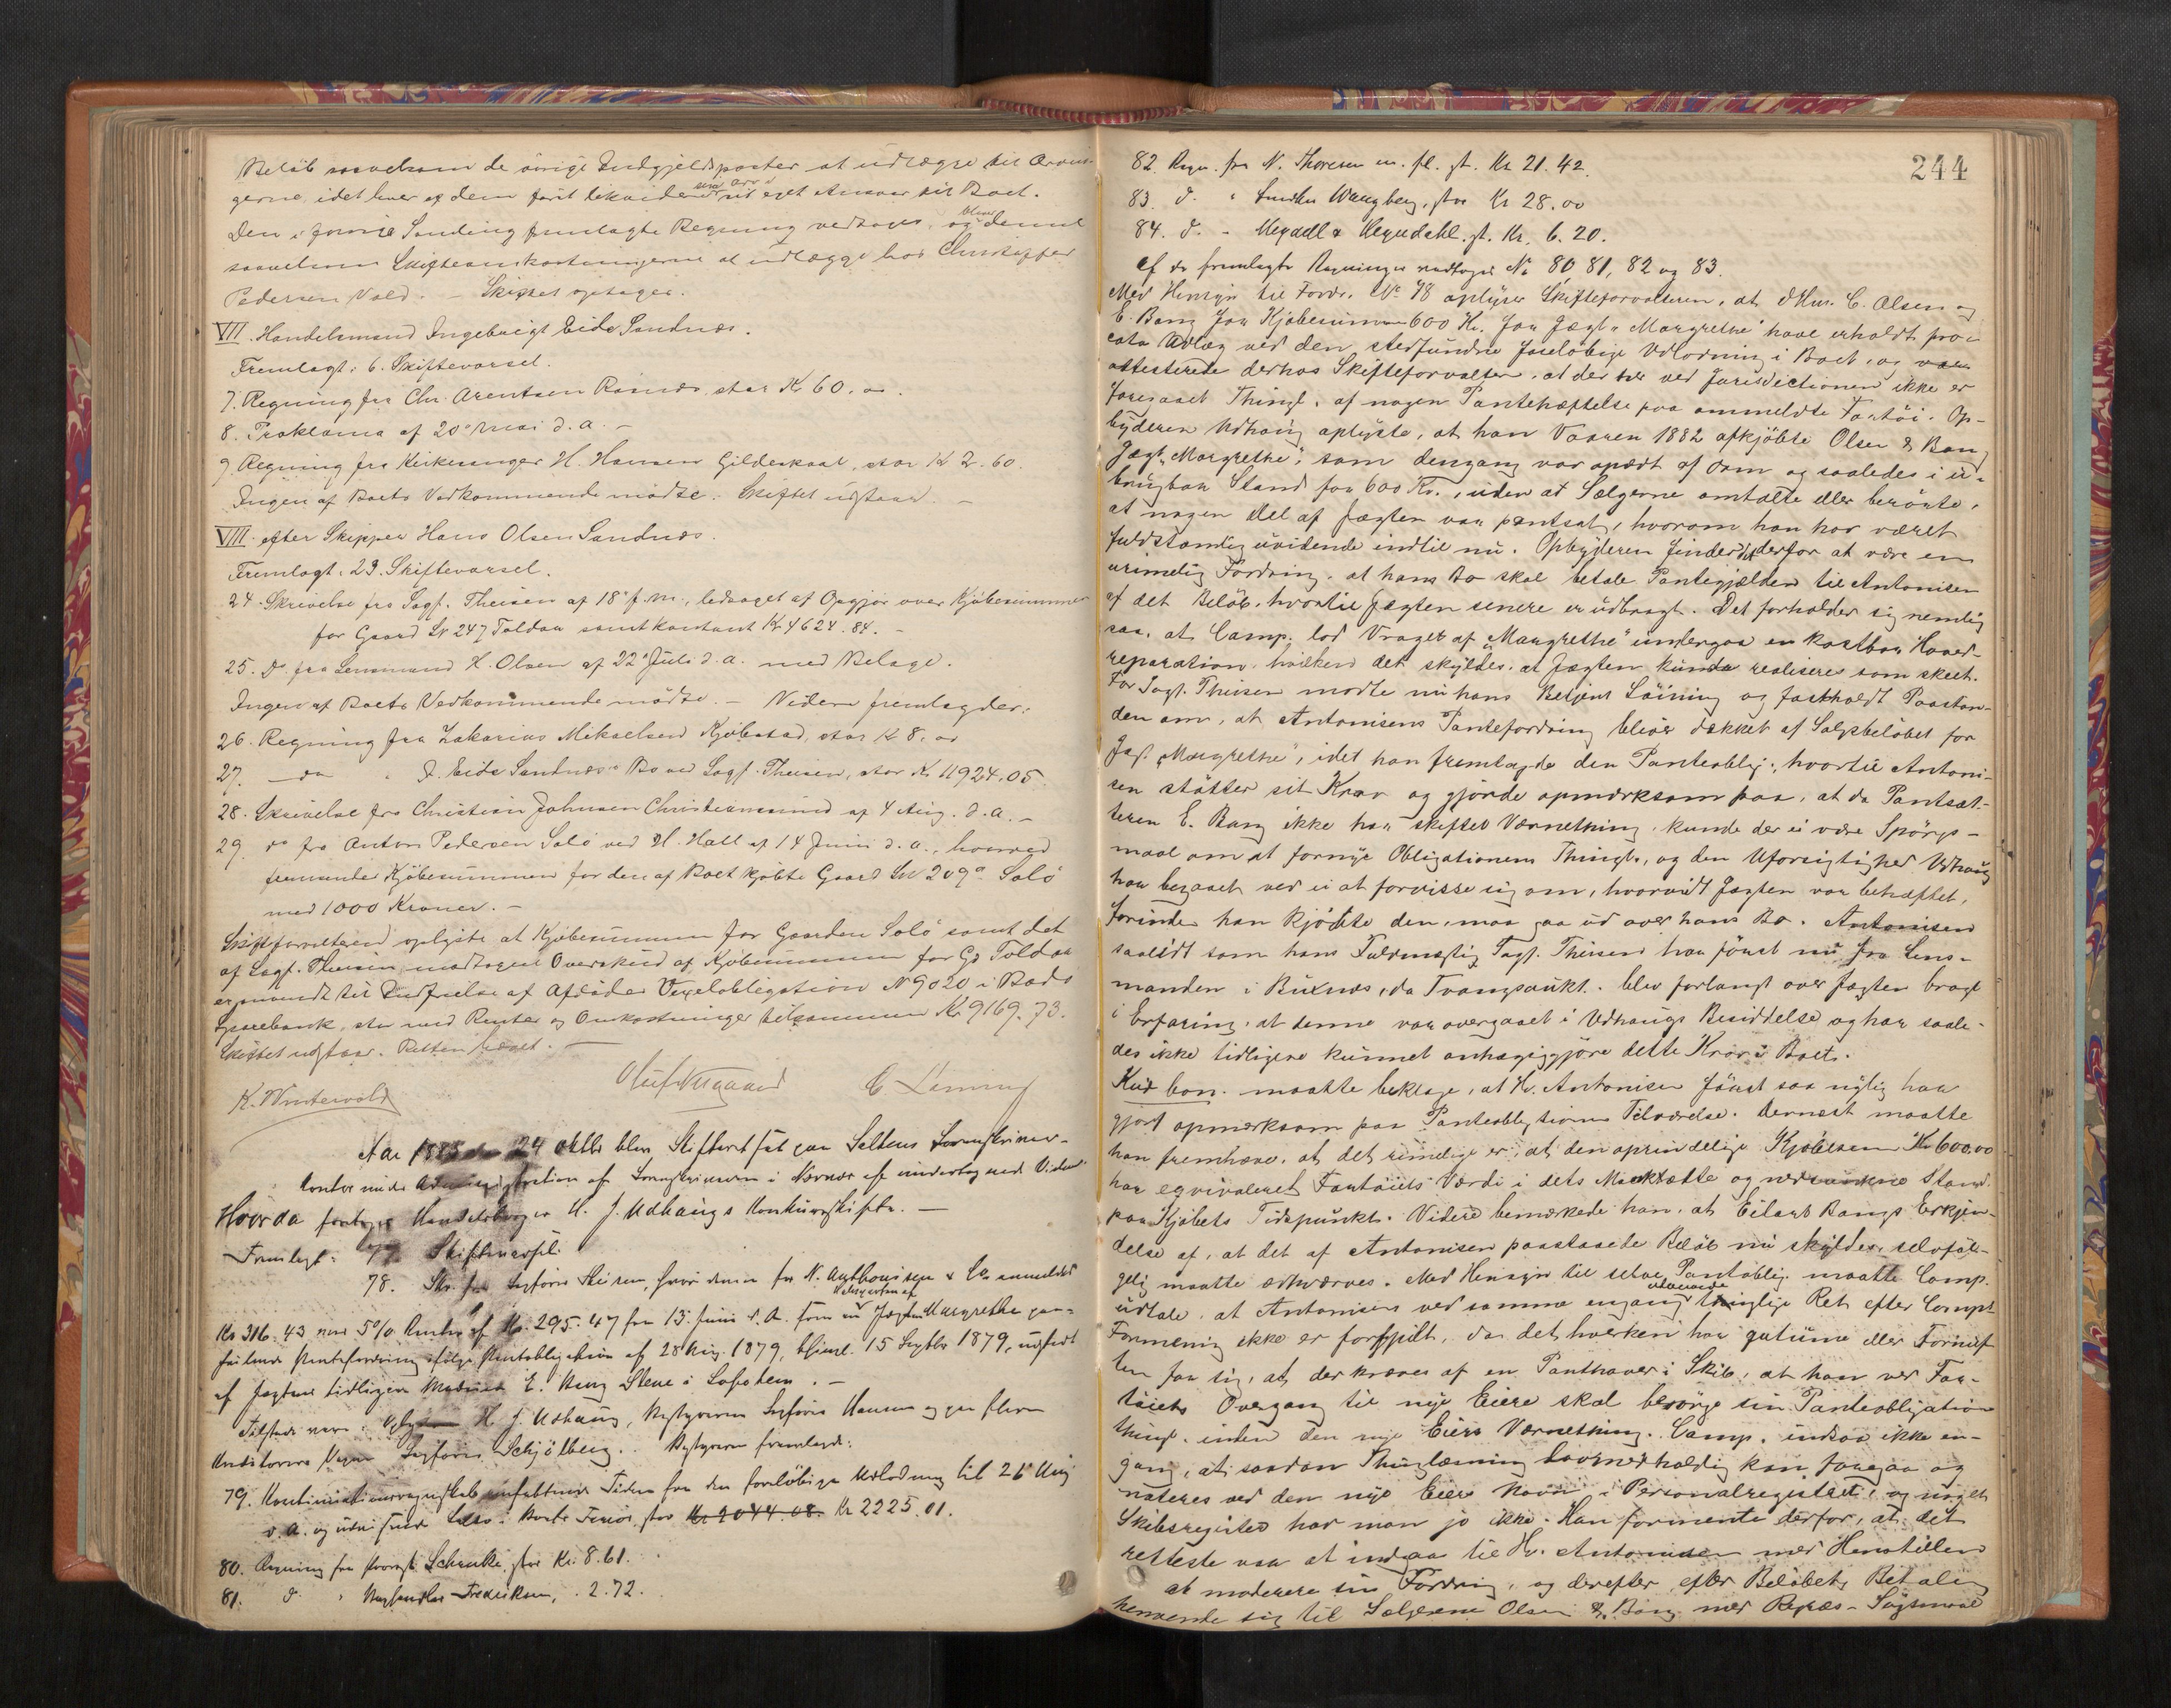 Beløb saavelsom de øvrige Indgjeldsposter at udlægge til Arvin-
gerne, idet hver af dem forit eget Ansvar til Boet.
Den i forrige Samling fremlagte Regning vedtages, og blev denne
saavelsom Skifteomkostningerne at udlægge hos Christopher
Pedersen Vold. – Skiftet optages.
VII. Handelsmand Ingebrigt Eide Sandnæs.
Fremlagt: 6. Skiftevarsel.
7. Regning fra Chr. Arentsen Rønnes, stor Kr 60. oo.
8. Proklama af 20de Mai d. a. –
9. Regning fra Kirkesanger H. Hansen Gildeskaal, stor Kr 2. 60.
Ingen af Boets Vedkommende mødte. Skiftet udstaar. –
VIII. efter Skipper Hans Olsen Sandnæs.
Fremlagt: 23. Skiftevarsel.
24. Skrivelse fra Sagf. Theisen af 18de f. m., ledsaget af Opgjør over Kjøbesummen
for Gaard Lr 247 Toldaa samt kontant Kr 4624. 84. –
25. Do fra Lensmand H. Olsen af 22de Juli d. a. med Bilage.
Ingen af Boets Vedkommende mødte. – Videre fremlagdes:
26. Regning fra Zakarias Mikaelsen Kjøbstad, stor Kr 8. oo
27. – do " I. Eide Sandnæs's Bo ved Sagf. Theisen, stor Kr 11924.05.
28. Skrivelse fra Christian Johnsen Christianssund af 4 Aug. d. a. –
29. do fra Anton Pedersen Solø ved H. Hall af 14 Juni d. a., hvorved
fremsender Kjøbesummen for den af Boet kjøbte Gaard Lr 209a Solø
med 1000 Kroner. –
Skifteforvalteren oplyste at Kjøbesummen for Gaarden Solø samt det
af Sagf. Theisen modtagne Overskud af Kjøbesummen for Gd Toldaa
er anvendt til Indfrielse af Afdødes Vexelobligation N 9020 i Bodø
Sparebank, stor med Renter og Omkostninger tilsammen Kr 9169. 73.
Skiftet udstaar. Retten hævet. –
K. Winterwold
C. Løining
Aar 1883 den 24 Oktbr blev Skifteret sat paa Saltens Sorenskriver-
kontor under Administration af Sorenskriveren i
foretages Handelsborger H. J. Udhaugs Konkursskifte. –
Fremlagt: 77. Skiftevarsel.
78. Skr. fra Sagfører Theisen, hvori denne for N. Anthonisen & Co anmelder
Kr 316. 43 med 5% Renter af Kr. 295. 47 fra 13 Juni d. A. som en Jagten Margrethe paa-
heftende Pantefordring ifølge Pantobligation af 28 Aug. 1879, thinl. 15 Septbr 1879, udstedt
af Jagtens tidligere E. Bang Stene i Lofoten. –
Tilstede var: H. J. Udhaug, Bestyreren Sagfører Hansen og paa flere
Kreditorers Vegne Sagfører Schjølberg. Bestyreren fremlagde:
79. omfattende Tiden fra den foreløbige Udlodning til 26 Aug
d. A. og i Boets Favør, stor Kr 2044.08. Kr 2225. 01.
80. Regning fra Schenke, stor Kr. 8. 61.
81. d. " Fredriksen, . 2. 72.
244
82. Regn. fra N. Thoresen m. fl. st. Kr 21. 42.
83. d. " Wangberg, stor Kr 28. oo
84. d. – Meydell & Heyerdahl. st. Kr. 6. 20.
Af de fremlagte Regninger vedtoges No 80, 81, 82 og 83.
Med Hensyn til Fordr. No 78 oplyser Skifteforvalteren, at dHrr. C. Olsen og
E. Bang for Kjøbesummen 600 Kr. for Jægt "Margrethe" have erholdt pro-
cota Udlæg ved den stedfundne foreløbige Udlodning i Boet, og
attesterede derhos Skifteforvalteren, at der ved Jurisdictionen ikke er
foregaaet Thingl. af nogen Pantehæftelse paa ommeldte Fartøi. Op-
byderen Udhaug oplyste, at han Vaaren 1882 afkjøbte Olsen & Bang
Jægt "Margrethe", som dengang var opædt af Orm og saaledes i u-
brugbar Stand for 600 Kr., uden at Sælgerne omtalte eller berørte,
at nogen Del af Jægten var pantsat, hvorom han har været
fuldstændig uvidende indtil nu. Opbyderen finder det derfor at være en
urimelig Fordring, at hans Bo skal betale Pantegjælden til Antonisen
af det Beløb, hvortil Jægten senere er udbragt. Det forholder sig nemlig
saa, at Comp. lod Vraget af "Margrethe" undergaa en kostbar Hoved-
reparation, hvilken det skyldes, at Jægten kunde realiseres som skeet.
For Sagf. Theisen mødte nu hans Betjent Løining og fastholdt Paastan-
den om, at Antonisens Pantefordring bliver dækket af Salgsbeløbet for
Jægt "Margrethe", idet han fremlagde den Panteoblig., hvortil Antoni-
sen støtter sit Krav og gjorde opmærksom paa, at da Pantsæt-
teren E. Bang ikke har skiftet Værnething, kunde der ei være Spørgs-
maal om at fornye Obligationens Thingl., og den Uforsigtighed Udhaug
har begaaet ved ei at forvisse sig om, hvorvidt Jægten var behæftet,
forinden han kjøbte den, maa gaa ud over hans Bo. Antonisen
saavidt som hans Fuldmægtig Sagf. Theisen har først nu fra Lens-
manden i Buxnæs, da Tvangsaukt. blev forlangt over Jægten bragt
i Erfaring, at denne var overgaaet i Udhaugs Besiddelse og har saale-
des ikke tidligere kunnet anhængiggjøre dette Krav i Boet.
Kur. bon. maatte beklage, at Hr. Antonisen først saa nylig har
gjort opmærksom paa Panteobligationens Tilværelse. Dernæst maatte
han fremhæve, at det rimelige er, at den oprindelige Kjøbesum Kr 600.00
har eqvivaleret Fartøiets Værdi i dets Markætte og nedsunkne Stand
paa Kjøbets Tidspunkt. Videre bemærkede han, at Eilert Bangs Erkjen-
delse af, at det af Antonisen paastaaede Beløb nu skyldes, selvføl-
gelig maatte erhverves. Med Hensyn til selve Pantoblig. maatte Comp.
udtale, at Antonisens ved samme engang erhvervede thinglige Ret efter Comps
Formening ikke er forspildt, da det hverken har gutume eller Fornuf-
ten for sig, at der kræves af en Panthaver i Skib, at han ved Far-
tøiets Overgang til nye Eiere skal besørge sin Panteobligation
thingl. inden den nye Eiers Værnething. Comp. indsaa ikke en-
gang, at saadan Thinglæsning lovmedholdig kan foregaa og
noteres ved den nye Eiers Navn i Personalregistret, og noget
Skibsregister har man jo ikke. Han formente derfor, at det
retteste var at indgaa til Hr. Antonisen med Henstillen
at moderere sin Fordring, og derefter efter Beløbets Betaling
henvende sig til Sælgerne Olsen & Bang med Regres-Søgsmaal